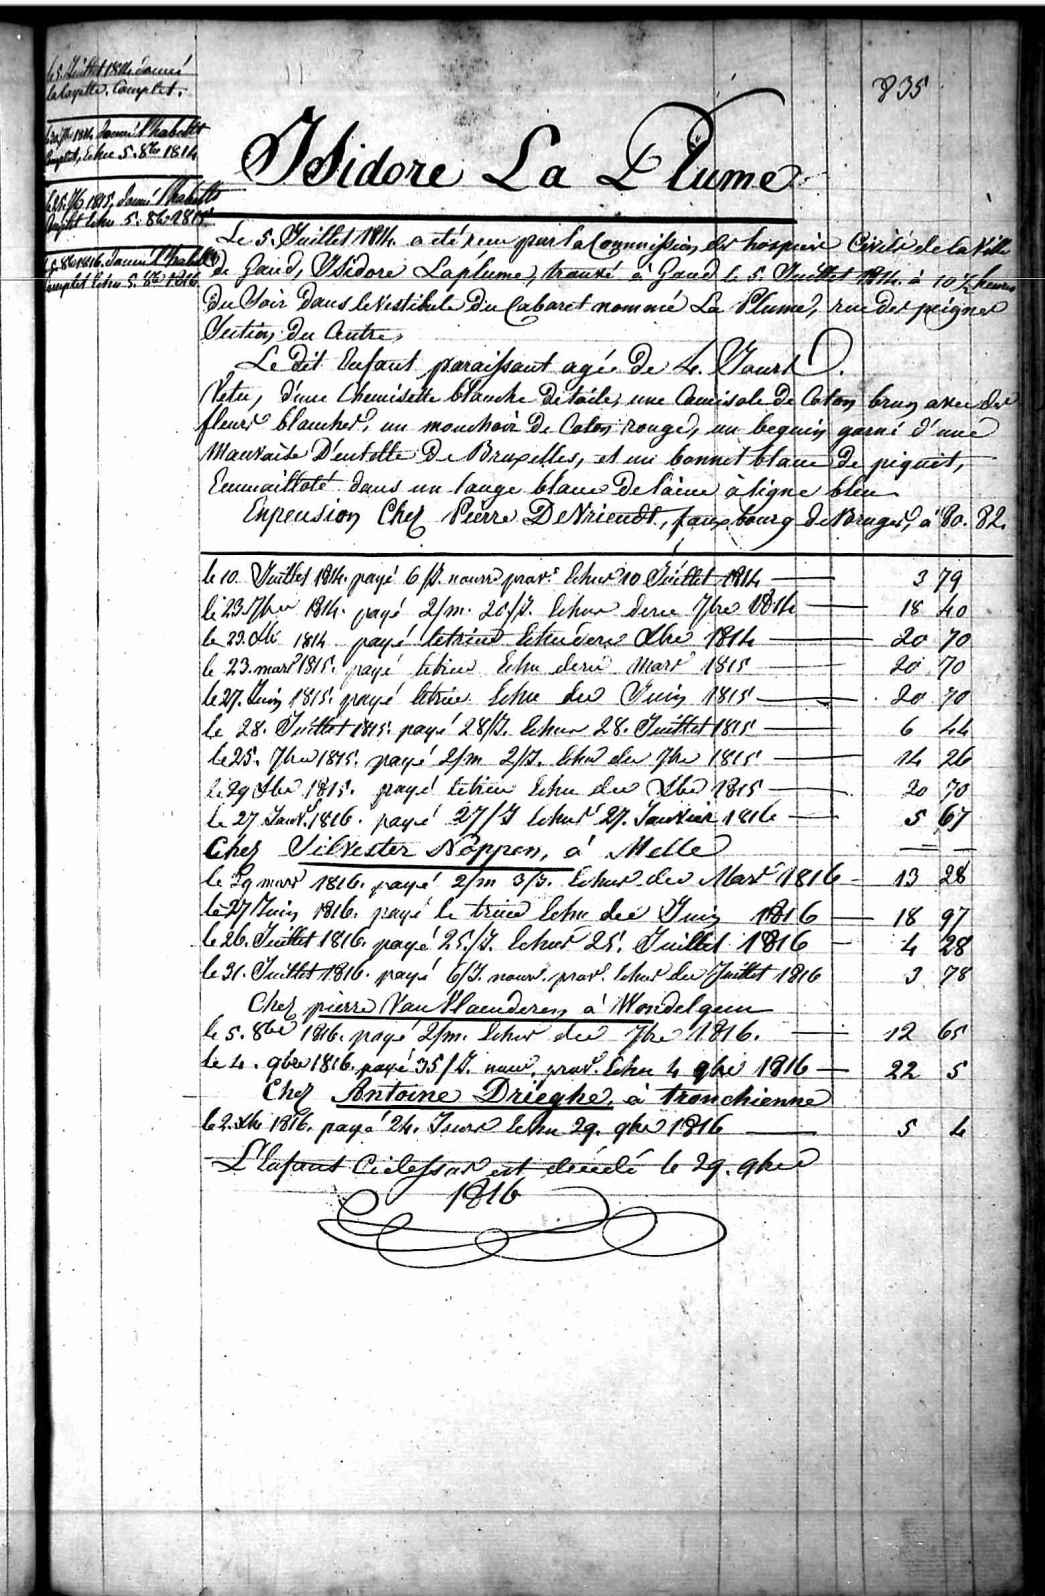 835
le 5. Juillet 1814. donné
la layette. Complet.
donné l'habillt
complet, Echu 5. 8bre 1814
1815, donné l'habillt
complet Echu 5. 8bre 1815
8bre 1816. donné l'habillt
complet Echu 5. 8bre 1816
Isidore La Plume
Le 5. Juillet 1814. a été reçu par la Commission des hospices Civils de la Ville
de Gand, Isidore Laplume, trouvé à Gand le 5. Juillet 1814. à 10 ½ heures
du Soir dans le vestibule du Cabaret nommé La Plume, rue des peignes
Section du Centre,
Le dit Enfant paraissant agé de 4. Jours.
Vetu, d'une Chemisette blanche de toile, une Camisole de Coton brun avec des
fleurs blanches, un mouchoir de Coton rouge, un beguin garni d'une
Mauvaise Dentelle de Bruxelles, et un bonnet blanc de piquet,
Emmailloté dans un lange blanc de laine à ligne bleu
Enpension Chez Pierre DeVriendt, fauxbourg de Bruges, à 80. 82.
le 10. Juillet 1814. payé 6/J. nourre provs. Echus 10 Juillet 1814 3 79
le 23 7bre 1814. payé 2/m. 20/J. Echus dere 7bre 1814 18 40
le 23. Xbre 1814 payé letrime Echu dere Xbre 1814 20 70
le 23. mars 1815. payé letrime Echu dere Mars 1815 20 70
le 27. Juin 1815. payé letrime Echu der Juin 1815 20 70
le 28. Juillet 1815. payé 28/J. Echus 28. Juillet 1815 6 44
le 25. 7bre 1815. payé 2/m 2/J. Echus der 7bre 1815 14 26
le 29 Xbre 1815. payé letrime Echu der Xbre 1815 20 70
le 27 Janvr. 1816. payé 27/J Echus 27. Janvier 1816 5 67
Chez Silvester Noppen, à Melle
le 29 mars 1816. payé 2/m 3/J. Echus der Mars 1816 13 28
le 27 Juin 1816. payé le trime Echu der Juin 1816 18 97
le 26. Juillet 1816. payé 25/J. Echus 25. Juillet 1816 4 28
le 31. Juillet 1816. payé 6/J. nourr. provs. Echus der Juillet 1816 3 78
Chez pierre Van Vlaenderen à Mondelgem
le 5. 8bre 1816. payé 2/m. Echus der 7bre 1816. 12 65
le 4. 9bre 1816. payé 35/J. nourr. provs. Echu 4 9bre 1816 22 5
Chez Antoine Drieghe, à tronchienne
le 2. Xbre 1816. payé 24. Jours Echu 29. 9bre 1816 5 4
L'Enfant Cidessus est décédé le 29. 9bre
1816